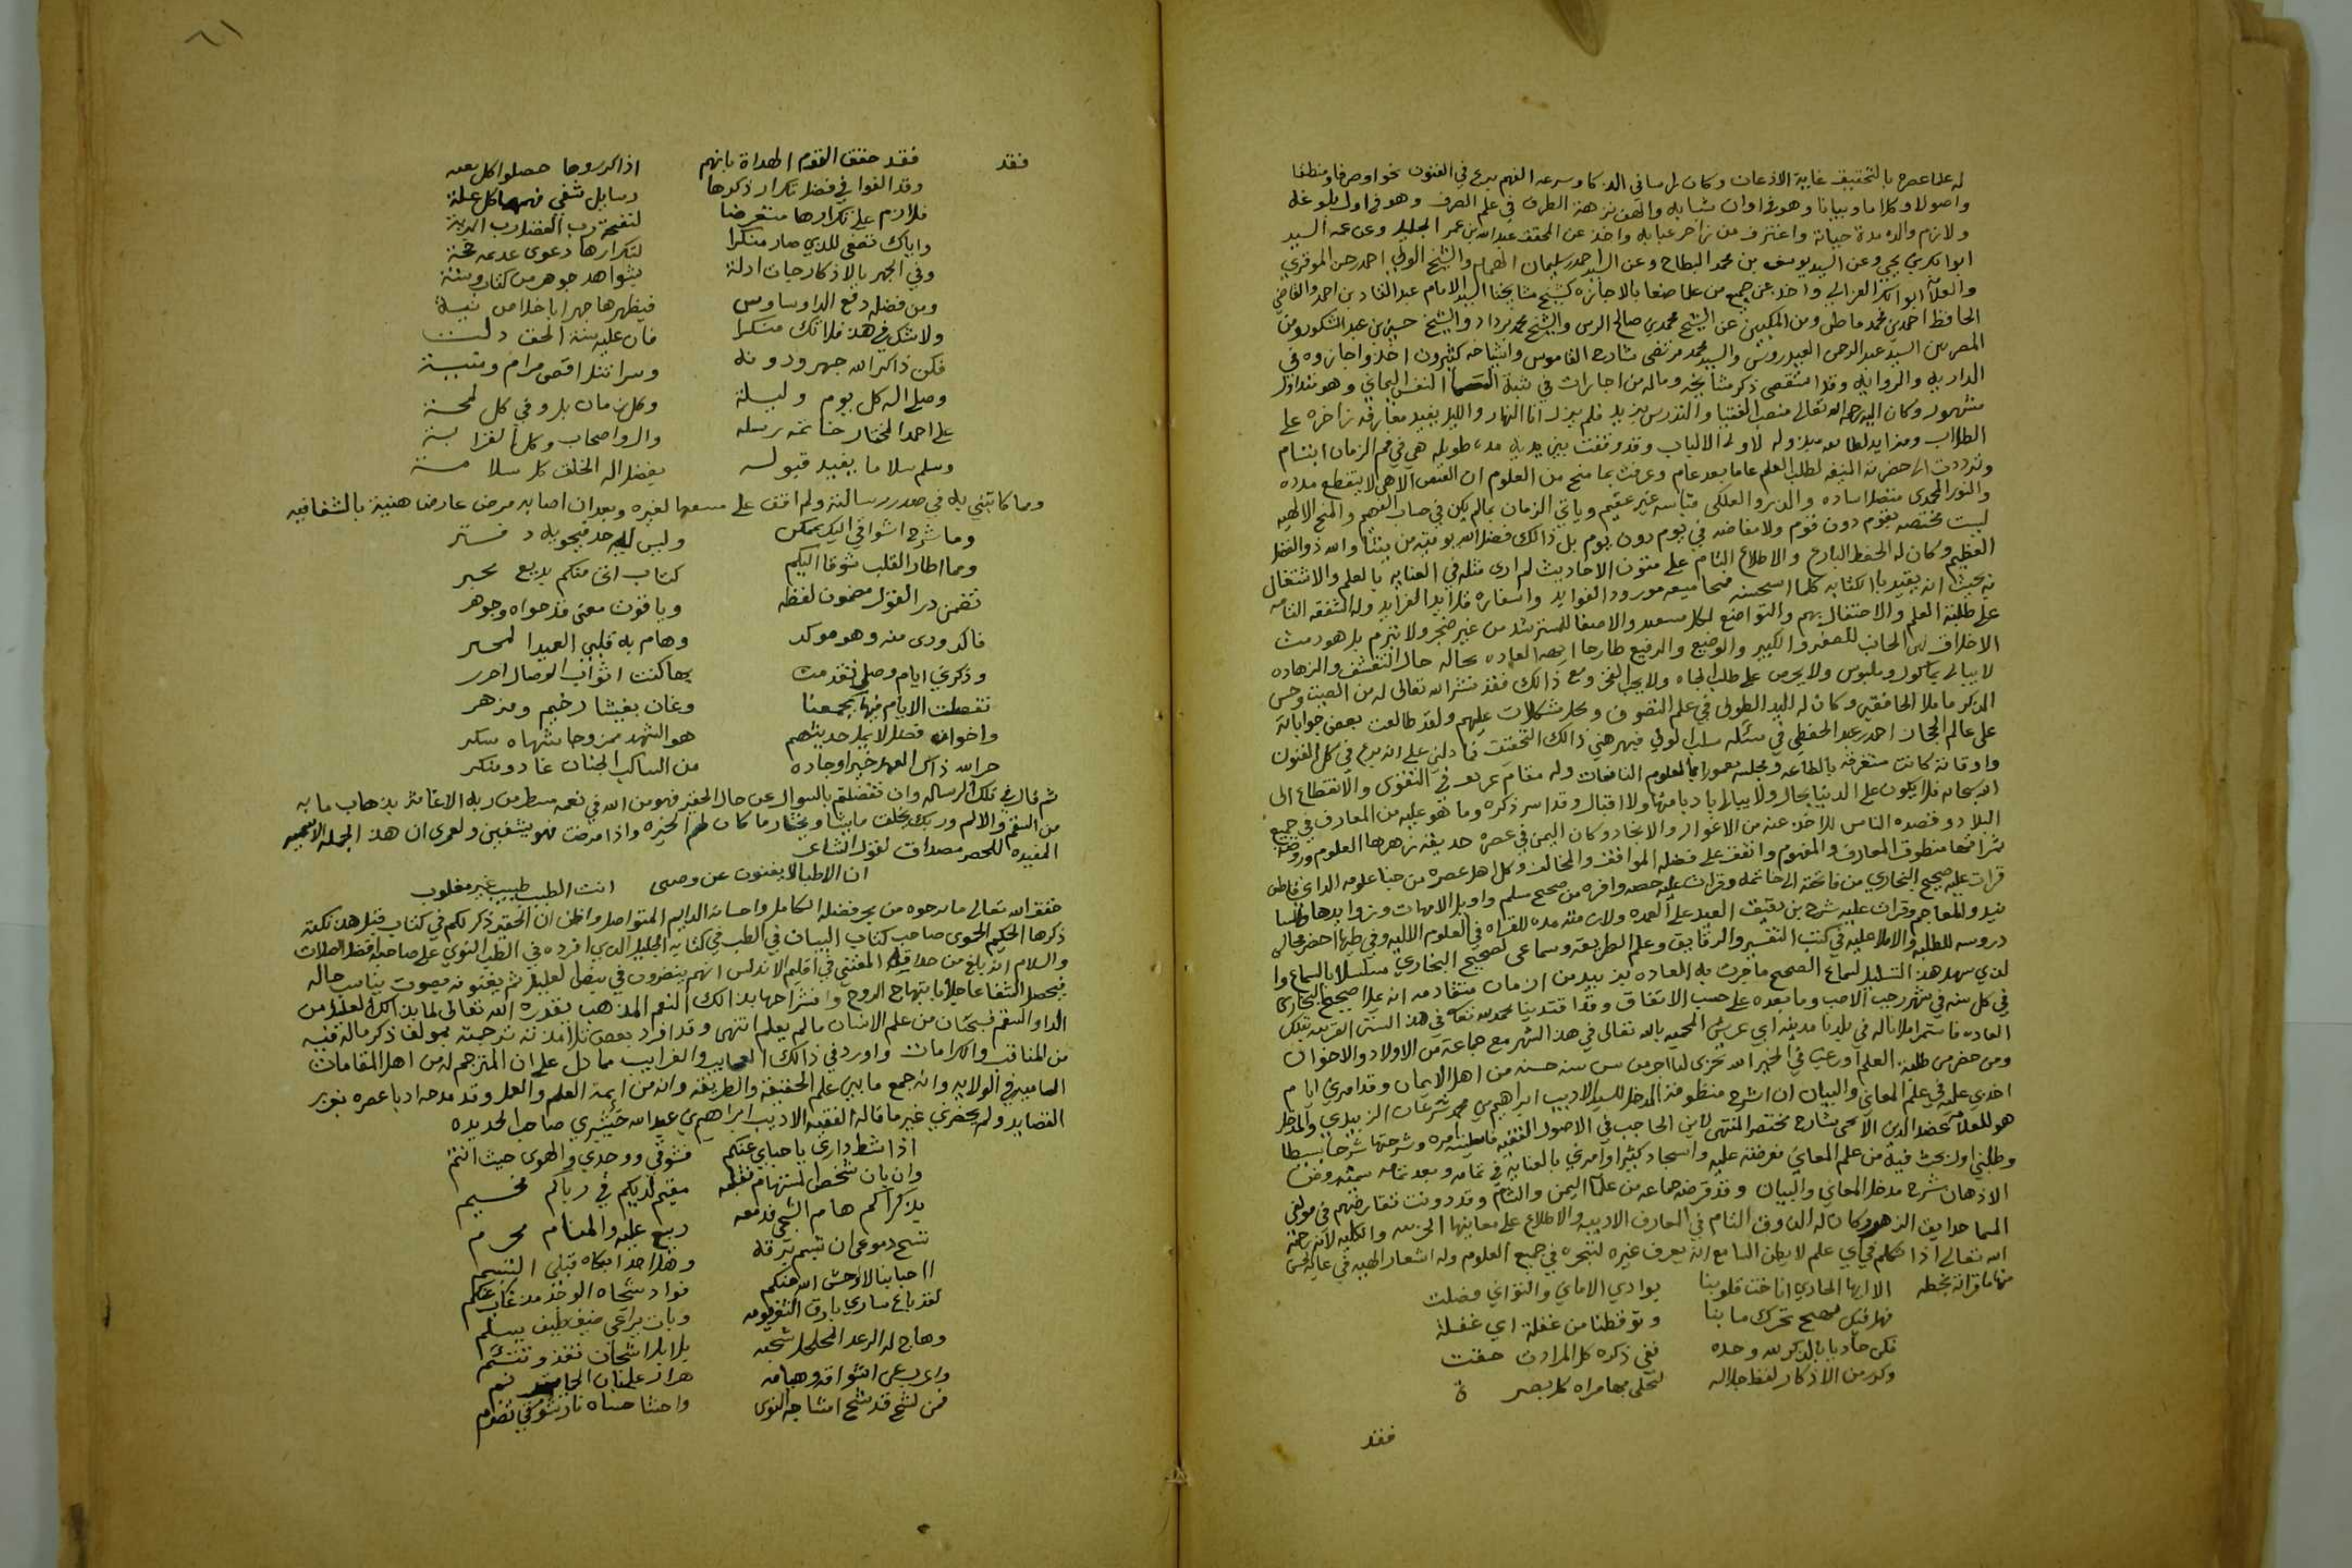 له علما عصره بالتحقيق غاية الاذعان وكان راسا في الذكا وسرعه الفهم برع في الفنون نحوا وصرفا ومنطقا
واصولا وكلاما وبيانا وهو في اوان شبابه والف نزهة الطرف في علم الصرف وهو في اول بلوغه
ولازم والده مدة حياته واغترف من زاخر عبابه واخذ عن المحقق عبدالله بن عمر الخليل وعن عمه السيد
ابوبكر بن يحيى وعن السيد يوسف بن محمد البطاح وعن السيد احمد سليمان الهمام والشيخ الولي احمد حسن الموقري
والعلا ابوابكر الغزالي واخذ عن جمع من علما صنعا بالاجازه كشيخ مشايخنا السيد الامام عبد القادر بن احمد والقاضي
الحافظ احمد بن محمد قاطن ومن المكيين عن الشيخ محمد بن صالح الريس والشيخ محمد مرداد والشيخ حسين بن عبد الشكور ومن
المصريين السيد عبد الرحمن العيدروس والسيد محمد مرتضى شارح القاموس واشياخه كثيرون اخذ واجازوه في
الدرايه والروايه وقد استقصى ذكر مشايخه وماله من اجازات في ثبته النفس اليماني وهو متداول
مشهور وكان اليه رحمه الله تعالى منصب الفتيا والتدريس بزبيد فلم يزل انا النهار والليل يفيد معارفه زاخره على
الطلاب وموايد لطايفه مبذوله لاولي الالباب وقد وقفت بين يديه مدة طويله هي في فم الزمان ابتسام
وترددت الى حضرته المنيفه لطلب العلم عاما بعد عام وعرفت بما منح من العلوم ان الفيض الالاهي لا ينقطع مدده
والنور المحمدي متصل اسناده والدور الفلكي قياسه غير عقيم وياتي الزمان بمالم يكن في حساب الفهم والمنح الالهيه
ليست مختصه بقوم دون قوم ولا مفاضه في يوم دون يوم بل ذالك فضل الله يوتيه من يشا والله ذو الفضل
العظيم وكان له الحفظ البارع والاطلاع التام على متون الاحاديث لم ارى مثله في العنايه بالعلم والاشتغال
به بحيث انه يقيد بالكتابه كلما استحسنه فمجاميعه مورود الفوايد واسفاره قلايد الفرايد وله الشفقه التامه
على طلبة العلم والاحتفال بهم والتواضع لكل مستفيد والاصغا للمسترشد من غير ضجر ولا تبرم بل هو دمث
الاخلاق لين الجانب للصغير والكبير والوضيع والرفيع طارحا ابهة العاده بحاله حال التقشف والزهاده
لا يبالي بماكول وملبوس ولا يحرص على طلب الجاه ولا يحب الفخر ومع ذالك فقد نشر الله تعالى له من الصيت وحسن
الذكر ما ملا الخافقين وكان له اليد الطولى في علم التصوف وحل مشكلات عليهم ولقد طالعت بعض جواباته
على عالم الحجاز احمد بن عبد الحفظي في مسئله سلب الولي فبهرهني ذالك التحقيق فما دلني على انه برع في كل الفنون
واوقاته كانت مستغرقه بالطاعه ومجلسه معمورا بالعلوم النافعات وله مقام عريف في التقوى والانقطاع الى
الله سبحانه فلا يكون على الدنيا بحال ولا يبالي بادبارها ولا اقبال وقد اسر ذكره وما هو عليه من المعارف في جميع
البلاد وقصده الناس للاخذ عنه من الاغوار والانجاد وكان اليمن في عصره حديقه زهرها العلوم وروضة
ثمراتها منطوق المعارف والمفهوم واتفق على فضله الموافق والمخالف وكل اهل عصره من حيا علومه الداني قاطف
قرات عليه صحيح البخاري من فاتحته الى خاتمته وقرات عليه حصه وافره من صحيح مسلم واوايل الامهات وزوايدها
والمعاجم وقرات عليه شرح بن دقيق العيد على العمده ولازمته مده للقراه في العلوم الاليه وفي طيها احضر مجالس
دروسه للطلبه والاملا عليه في كتب التفسير والرقايق وعلم الطريقه وسماعى لصحيح البخاري مسلسلا بالسماع
في كل سنه في شهر رجب الاصب وما بعده على حسب الاتفاق
العاده فاستمر املانا له في بلدنا مدينه ابي عريش المحميه بالله تعالى في هذا الشهر مع جماعة من الاولاد والاخوان
ومن حضر من طلبة العلم ارغب في الخير الله نحرى لنا اجر من سن سنه حسنه من اهل الايمان وقد امرني ايام
اخذي عليه في علم المعاني والبيان ان اشرح منظومة المدخل للسيد الاديب ابراهيم بن محمد شرعان الزبيدي والمدخل
هو للعلا عضد الدين الايجي شارح مختصر المنتهى لابن الحاجب في الاصول الفقهيه فامتثلت امره وشرحتها شرحا بسيطا
وطلبني اول بحث فيه من علم المعاني فعرضته عليه واستجاد كثيرا وامرني بالعنايه في تمامه وبعد تمامه سميته روض
الاذهان شرح مدخل المعاني والبيان وقد قرضه جماعه من علما اليمن والشام وقد دونت تقاريضهم في مولفي
المسما حدايق الزهر وكان له الذوق التام في المعارف الادبيه والاطلاع على معانيها الجزئيه والكليه لانه رحمه
الله تعالى اذا تكلم في اي علم لا يظن السامع انه يعرف غيره لتبحره في جميع العلوم وله اشعار الهيه في غايه الحسن
منها ما قراته بخطه الا ايها الحادي اناخت قلوبنا بوادي الاماني والتواني فضلت
فهل قبل مهيج تحرك ما بنا وتوقظنا من غفلة اي غفلة
فكن حاديا بالذكر لله وحده ففي ذكره كل المرادت حفت
وكرر من الاذكار لفظ جلاله لتجلى بها مراه كل بصيرة
فقد
٦١
فقد
فقد حقق القوم الهداة بانهم اذا كرروها حصلوا كل بغيه
وقد الفوا في فضل تكرار ذكرها رسايل تشفي فهمها كل علة
فلازم على تكرارها متعرضا لنفحة رب الفضل رب البريه
واياك تصغي للذي صار منكرا لتكرارها دعوى عديمه حجة
وفي الجهر بالاذكار جات ادلة شواهد جوهر من كتاب وسنة
ومن فضله دفع الداء وساوس فيظهرها جهرا باخلاص نيه
ولا شك في هذ فلا تك منكرا فان عليه سنة الحق دلت
فكن ذاكرا لله جهر ودونه وسرا تنل اقصى مرام ومنية
وصلى اله كل يوم وليلة وكل زمان بل وفي كل لمحة
على احمد المختار خاتمه رسله وال واصحاب وكل القرابة
وسلم سلاما يفيد قبوله بفضل اله الخلق كل سلامة
ومما كاتبني به في صدر رسالته ولم اقف على سمعها لغيره وبعد ان اصابه مرض عارض هنيته بالشفا فيه
وما شرح اشواقي اليك يمكن وليس له حد فيحويه دفستر
ومما اطار القلب شوقا اليكم كتاب اتى منكم بديع محبر
تضمن در القول مضمون لفظه وياقوت معنى قد حواه وجوهر
فاكد ودى منه وهو موكد وهام به قلبي العميد المحسر
وذكرني ايام وصل تقدمت بها كنت اثواب الوصال اجرر
تفضلت الايام فيها بجمعنا وغان بغيشا رخيم ومزهر
واخوان فضل لا يمل حديثهم هو الشهد ممزوجا بشهاه سكر
جزا الله ذاك العهد خيرا وجاده من الساكب الهتان غاد ومبكر
ثم قال في تلك الرساله وان تفضلتم بالسوال عن حال الحقير فهو من الله في نعمه
من السقم والالم وربك يخلق مايشا ويختار ما كان لهم الخيره واذا مرضت فهو يشفين ولعمرى ان هذه الجمله الاسميه
المفيده للحصر مصداق لقول الشاعر
ان الاطبا لا يغنون عن وصبى انت الطبيب طبيب غير مغلوب
حقق الله تعالى ما نرجوه من بحر فضله الكامل واحسانه الدايم المتواصل واظن ان الحقير ذكر لكم في كتاب قبل هذا نكتة
ذكرها الحكيم الحموى صاحب كتاب البيان في الطب في كتابه الجليل الذي افرده في الطب النبوي على صاحبه افضل الصلات
والسلام انه بلغ من حذاقه المغنين في اقليم الاندلس انهم ينظرون في نبض العليل ثم يغنونه بصوت يناسب حاله
فيحصل الشفا عاجلا بابتهاج الروح وانشراحها بذالك النغم المذهب بقدرة الله تعالى لما بذالك العليل من
الدا والسقم فسبحان من علم الانسان مالم يعلم انتهى وقد افرد بعض تلامذته ترجمته بمولف ذكر ماله فيه
من المناقب والكرامات واورد في ذالك العجايب والغرايب مما دل على ان المترجم له من اهل المقامات
الساميه في الولايه وانه جمع ما بين علم الحقيقه والطريقه وانه من ايمة العلم والعمل وقد مدحه ادبا عصره بغرر
القصايد ولم يحضرني غير ما قاله الفقيه الاديب ابراهيم بن عبدالله حشيبري صاحب الحديده
اذا شط داري يا حبايبي عنكم فشوقي ووجدي والهوى حيث انتم
وان بان شخصى لستهام فقلبه مقيم لديكم في رباكم مخيم
يذكراكم هام الشجي فدمعه ربيع عليه والمنام محرم
تسح دموعى ان تبسم برقه وهذا اذا ابكاه قبلي التبسم
ااحبابنا لا اوحش الله منكم فواد شجاه الوجد مذ غاب عنكم
لقد باع ساري بارق الثغر نومه وبات يراعي ضيف طيف يسلم
وهاج له الرعد المجلجل شجيه بلابل اشجان تقد وتقسم
واعرب عن اشواقه وهيامه
فمن لشج قد شج امشاجه النوى واحشا حشاه نار شوقي تضرم